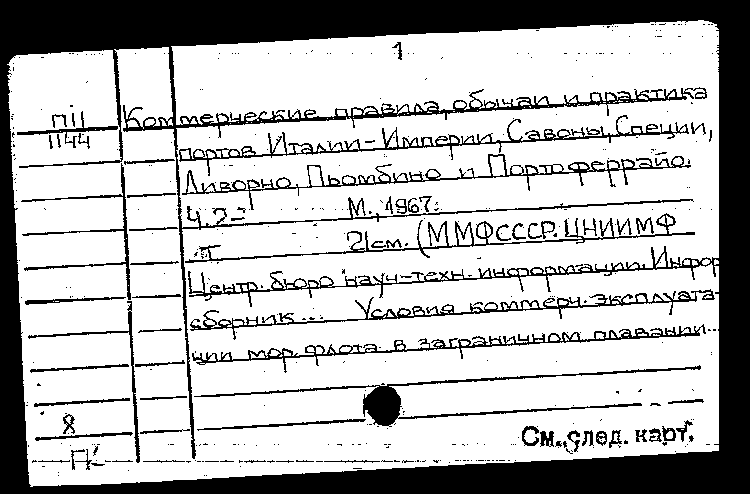 1
П11 Коммерческие правила, обычаи и практика
1144 портов Италии-Империи, Савоны, Специи,
Ливорно, Пьомбино и Портоферрайо.
Ч.2- М., 1967.
21см. (ММФСССР. ЦНИИМФ
Центр. бюро науч-техн. информации. Инфор
сборник... Условия коммерч. эксплуата-
ции мор. флота в заграничном плавании...
8
См. след. карт.
П